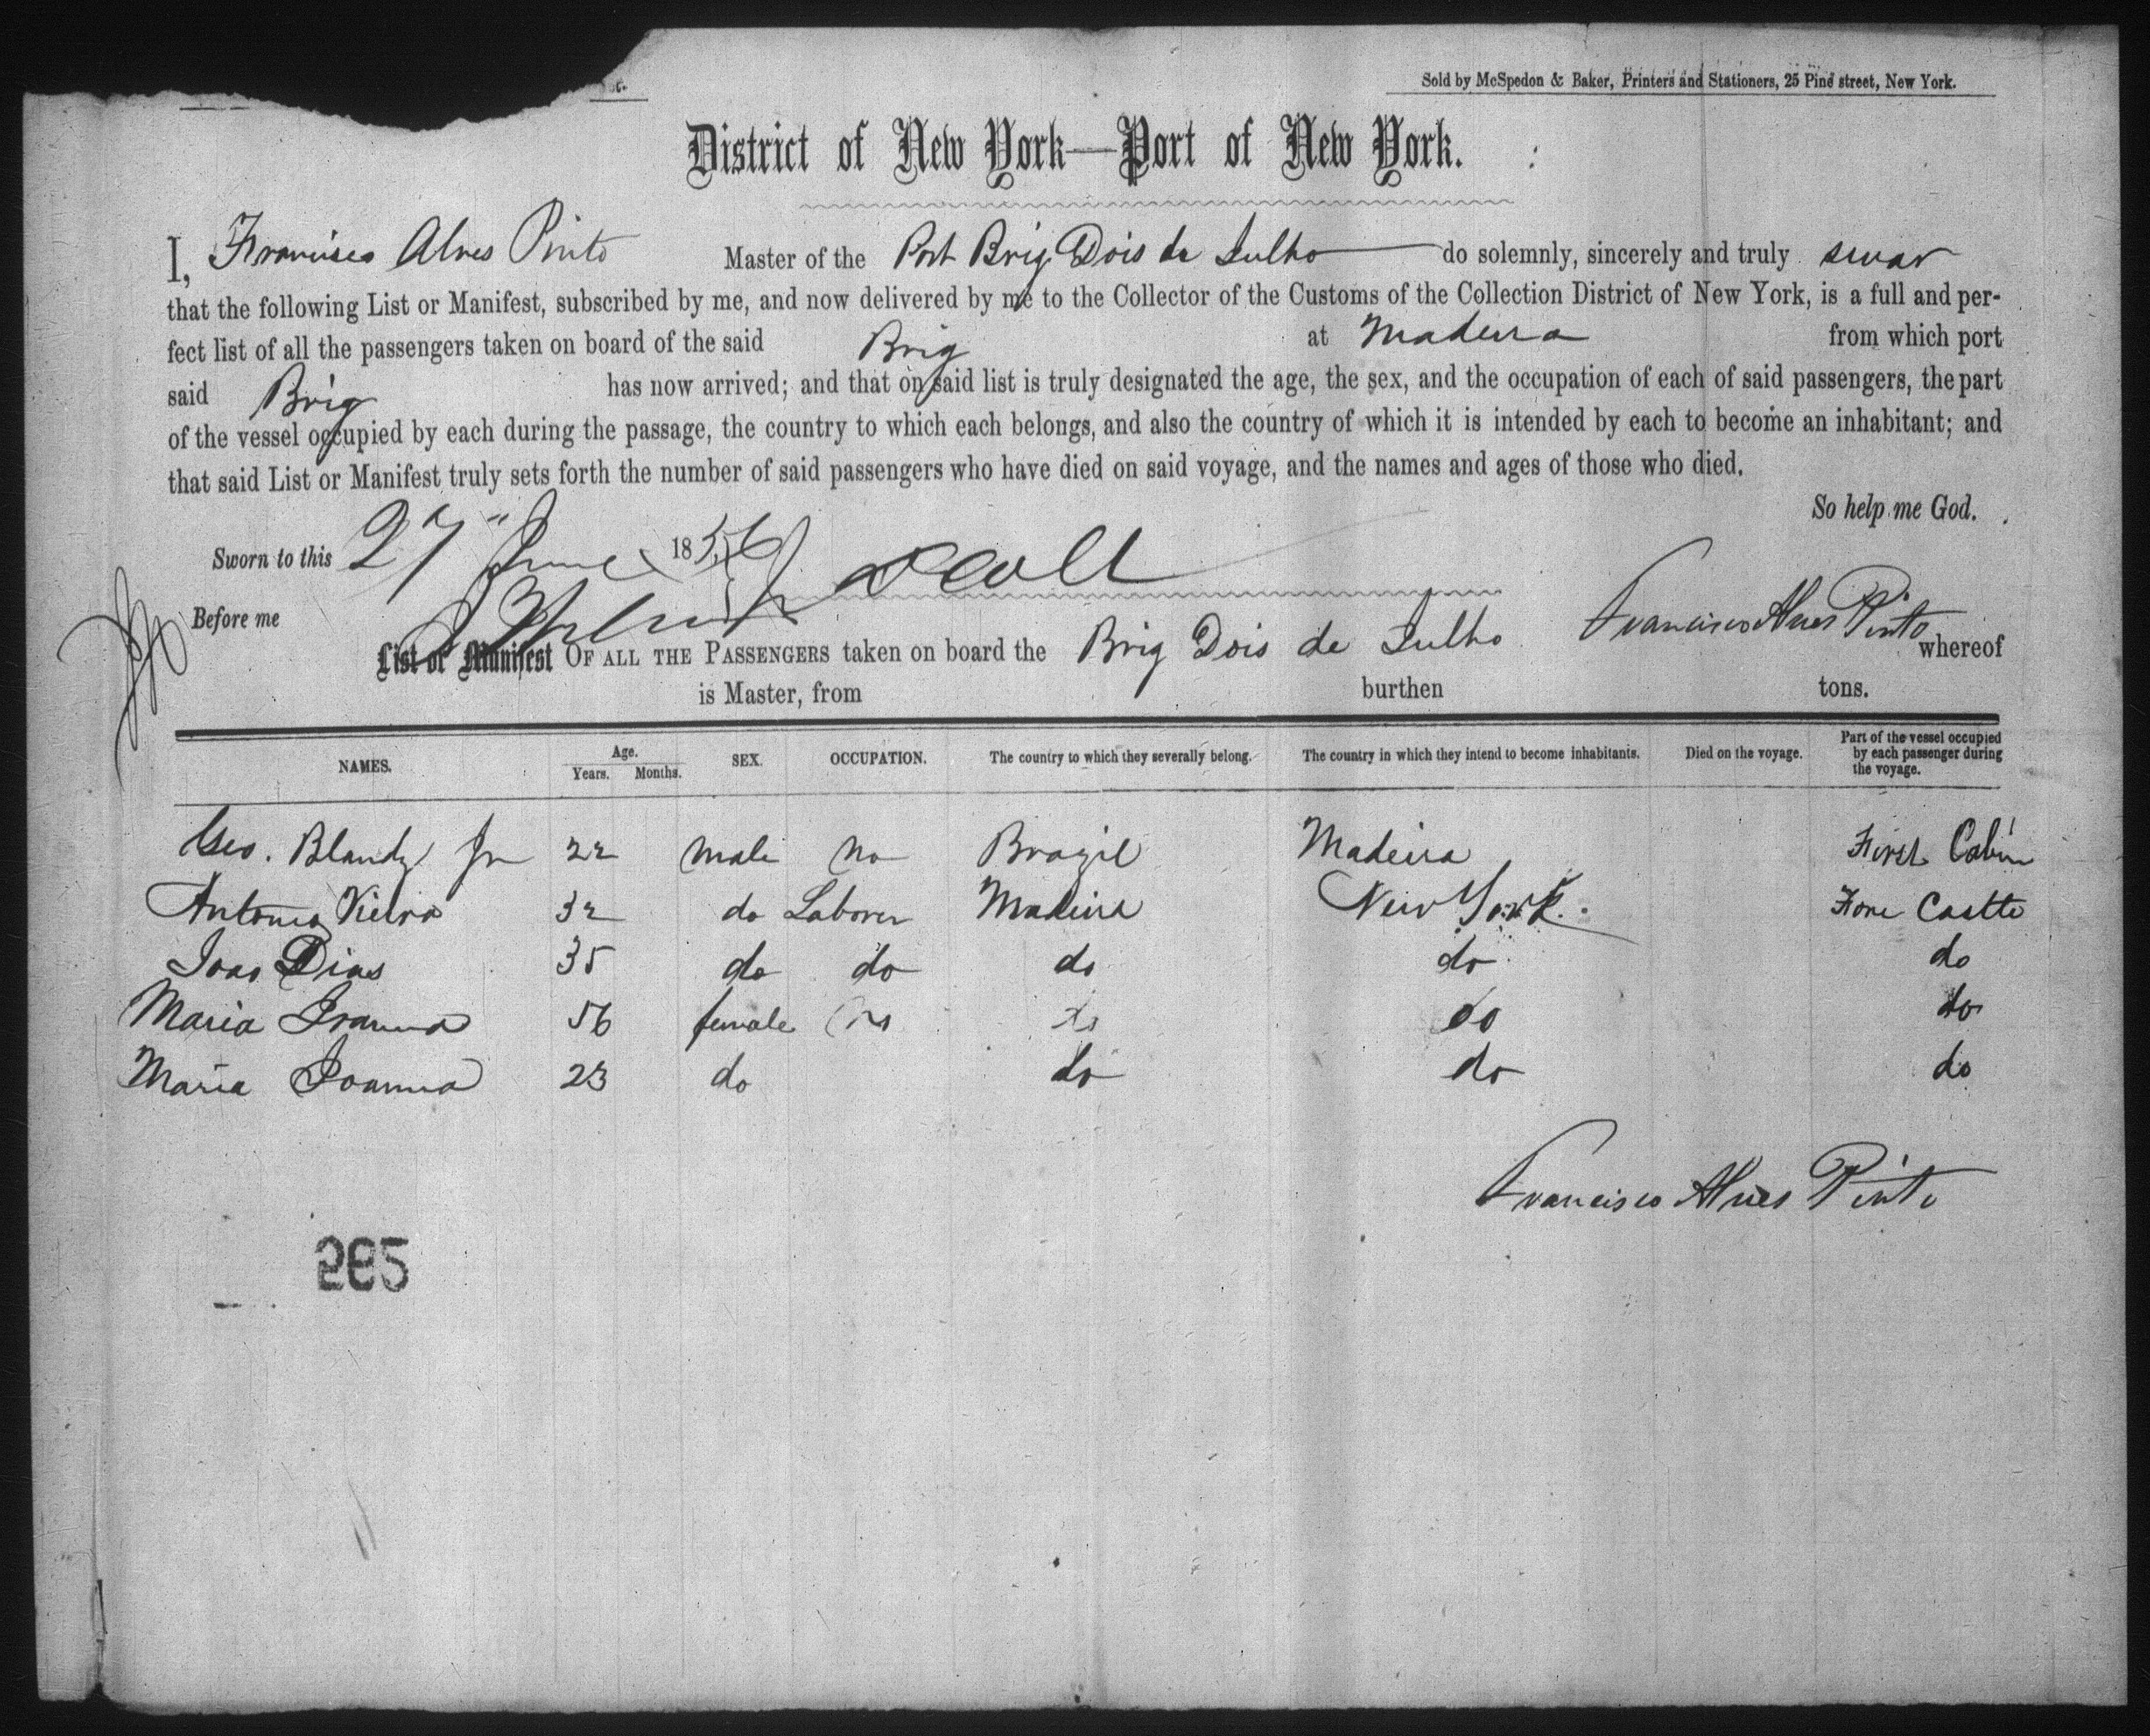 Sold by McSpedon & Baker, Printers and Stationers, 25 Pine street, New York.
District of New York—Port of New York.
I, Francisco Alves Pinto Master of the Port Brig Dois de Julho do solemnly, sincerely and truly swear
that the following List or Manifest, subscribed by me, and now delivered by me to the Collector of the Customs of the Collection District of New York, is a full and per-
fect list of all the passengers taken on board of the said Brig at Madeira from which port
said Brig has now arrived; and that on said list is truly designated the age, the sex, and the occupation of each of said passengers, the part
of the vessel occupied by each during the passage, the country to which each belongs, and also the country of which it is intended by each to become an inhabitant; and
that said List or Manifest truly sets forth the number of said passengers who have died on said voyage, and the names and ages of those who died.
So help me God.
Sworn to this 27" June 1856
Before me Francisco Alves Pinto
List or Manifest OF ALL THE PASSENGERS taken on board the Brig Dois de Julho whereof
is Master, from burthen tons.
NAMES. Age. Years. Months. SEX. OCCUPATION. The country to which they severally belong. The country in which they intend to become inhabitants. Died on the voyage. Part of the vessel occupied by each passenger during the voyage.
Geo. Blandy Jr 22 male no Brazil Madeira First Cabin
Antonio Vieira 32 do Laborer Madeira New York. Fore Castle
Joao Dias 35 do do do do do
Maria Joanna 56 female no do do do
Maria Joanna 23 do do do do
Francisco Alves Pinto
295